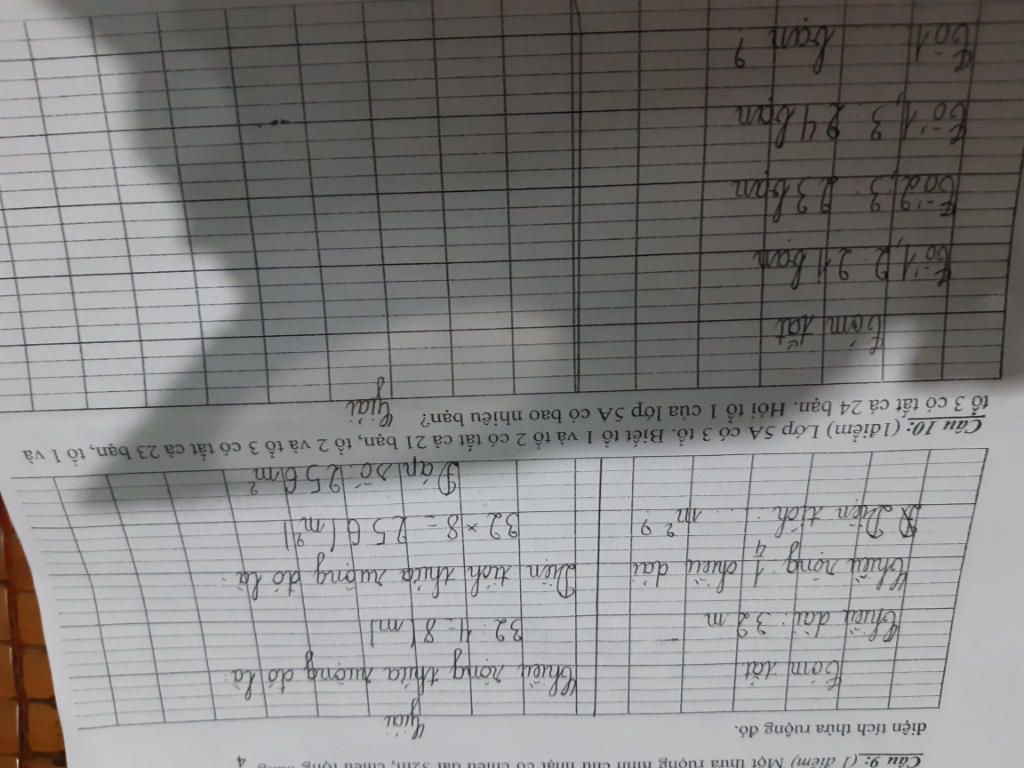 Câu 9: (1 điểm) Một thửa ruộng hình chữ nhật có chiều dài 32m, chiều rộng bằng 4
diện tích thửa ruộng đó.
Giải
Tóm tắt
Chiều dài: 32 m
Chiều rộng 1/4 chiều dài
Diện tích: ... m² ?
Chiều rộng thửa ruộng đó là:
32 : 4 = 8 (m)
Diện tích thửa ruộng đó là:
32 × 8 = 256 (m²)
Đáp số: 256m²
Câu 10: (1điểm) Lớp 5A có 3 tổ. Biết tổ 1 và tổ 2 có tất cả 21 bạn, tổ 2 và tổ 3 có tất cả 23 bạn, tổ 1 và
tổ 3 có tất cả 24 bạn. Hỏi tổ 1 của lớp 5A có bao nhiêu bạn?
Giải
Tóm tắt
Tổ 1, 2: 21 bạn
Tổ 2, 3: 23 bạn
Tổ 1, 3: 24 bạn
Tổ 1: ... bạn ?